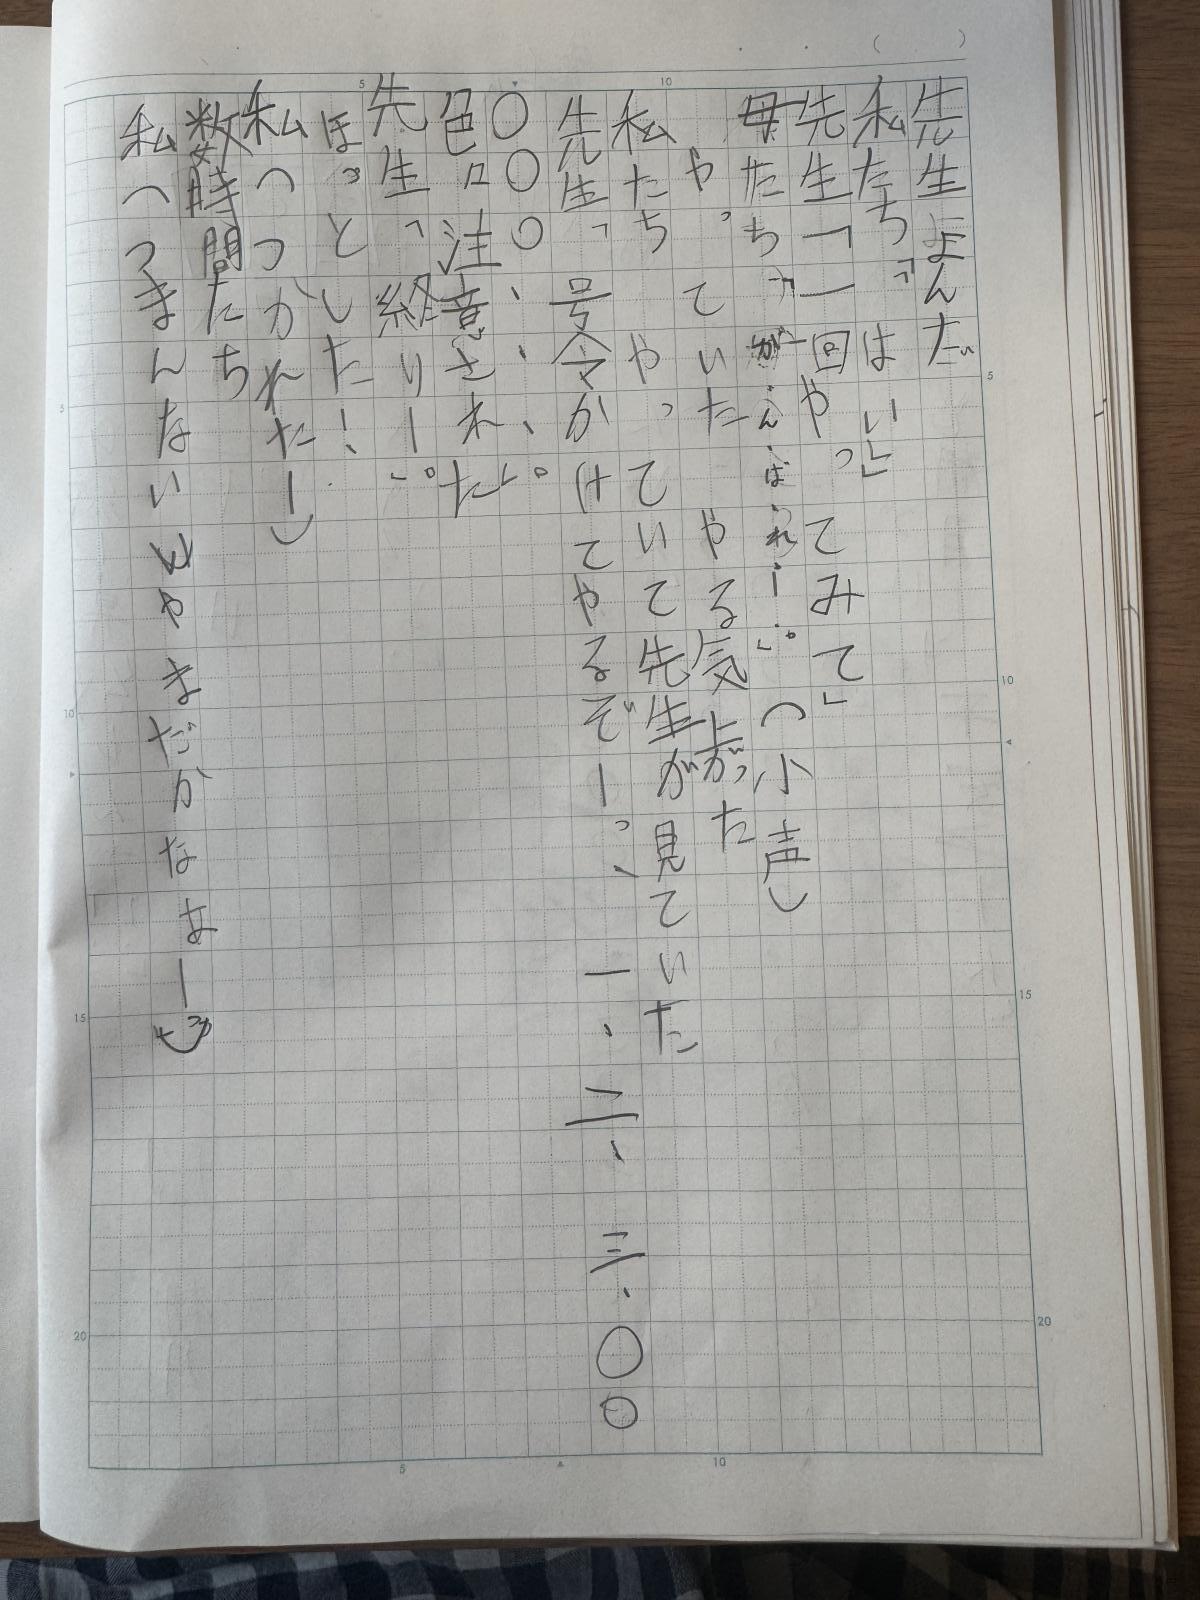 先生よんだ
私たち「はい」
先生「一回やってみて」
母たち「がんばれー!」(小声)
やっていたやる気上がった
私たちやっていて先生が見ていた
先生「号令かけてやるぞー」、一、二、三、〇〇
〇〇〇、、、。」
色ロ注意された
先生「終りー」。
ほっとした!
私(つかれたー)
数時間たち
私(つまんないしゃまだかなぁー)